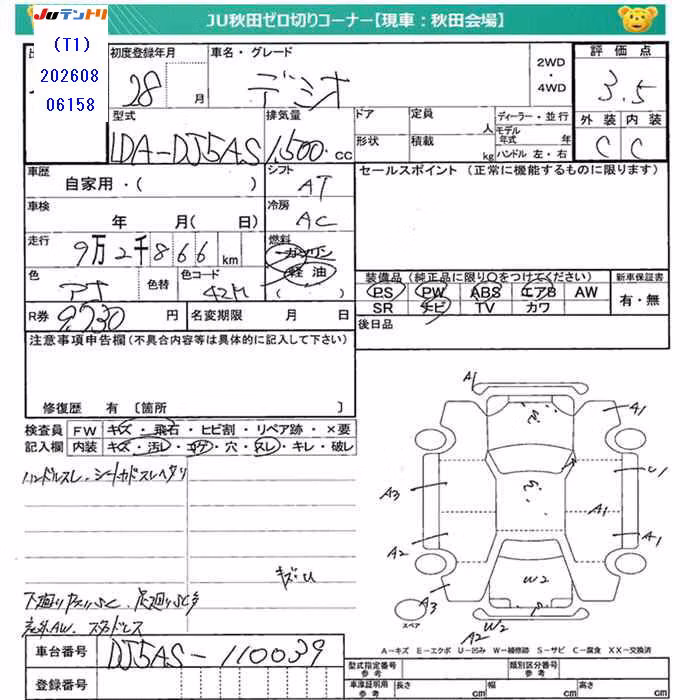 JUテントリ
JU秋田ゼロ切りコーナー【現車：秋田会場】
(T1)
202608
06158
初度登録年月
28 月
車名・グレード
デミオ
2WD
・
4WD
評価点
3.5
外装 内装
C C
型式
LDA-DJ5AS
排気量
1,500 cc
ドア
形状
定員 人
積載 kg
ディーラー・並行
モデル年式 年
ハンドル 左・右
車歴
自家用・( )
シフト
AT
車検
年 月( 日)
冷房
AC
走行
9万2千866 km
燃料
ガソリン
軽油
( )
色
色替
色コード
42M
R券
9,730 円
名変期限 月 日
セールスポイント (正常に機能するものに限ります)
装備品 (純正品に限り〇をつけてください)
PS PW ABS エアB AW
SR ナビ TV カワ
新車保証書
有・無
後日品
注意事項申告欄 (不具合内容等は具体的に記入して下さい)
修復歴 有 〔箇所 〕
検査員
記入欄
FW キズ・飛石・ヒビ割・リペア跡・×要
内装 キズ・汚レ・コゲ・穴・スレ・キレ・破レ
ハンドルスレ、シートカドスレヘタリ
キズU
A1
A1
A3
U1
A1
A2
A1
A3
W2
W2
A2
スペア
A-キズ E-エクボ U-凹み W-補修跡 S-サビ C-腐食 XX-交換済
車台番号
DJ5AS-110039
登録番号
型式指定番号
参考
類別区分番号
参考
車庫証明用
参考
長さ cm
幅 cm
高さ cm